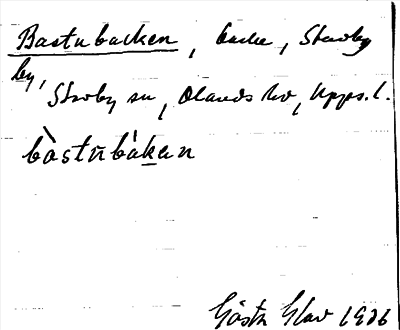 Bastubacken, backe, Skavby
by,
Skavby sn, Olands hd, Upps. l.
bàstubàkan
Gösta Glav 1936